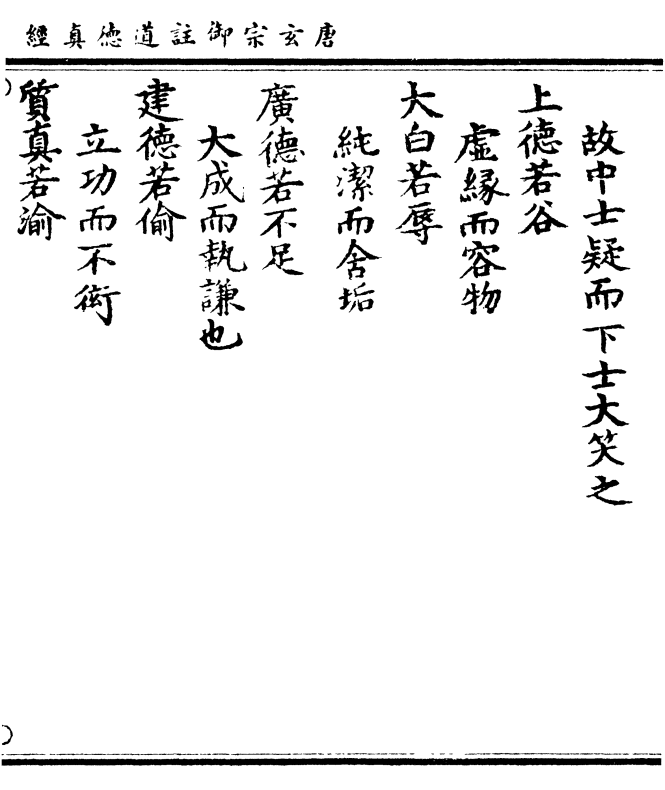 唐玄宗御註道德真經
故中士疑而下士大笑之
上德若谷
虛緣而容物
大白若辱
純潔而含垢
廣德若不足
大成而執謙也
建德若偷
立功而不衒
質真若渝